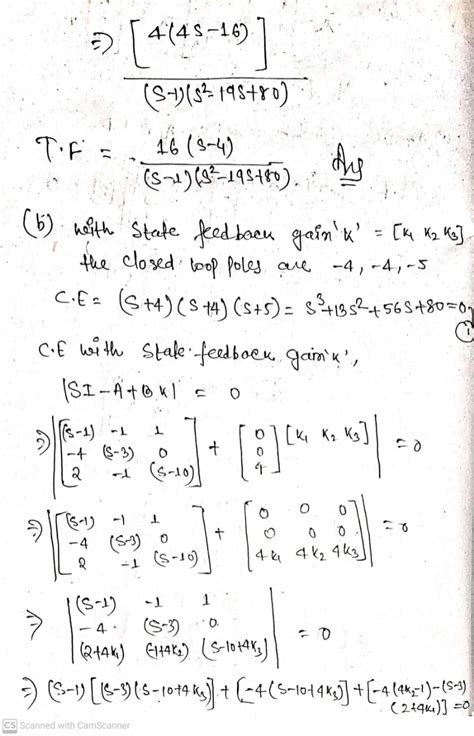 ⇒ [4(4S-16)]
(S-1)(S²-19S+80)
T.F = 16(S-4)
(S-1)(S²-19S+80). Ans
(b) with State feedback gain 'k' = [K1 K2 K3]
the closed loop poles are -4, -4, -5
C.E = (S+4)(S+4)(S+5) = S³+13S²+56S+80=0 ①
C.E with State feedback gain 'k',
|SI-A+BK| = 0
⇒ |[(S-1) -1 1
-4 (S-3) 0
2 -1 (S-10)] + [0 0 4] [K1 K2 K3]| = 0
⇒ |[(S-1) -1 1
-4 (S-3) 0
2 -1 (S-10)] + [0 0 0
0 0 0
4K1 4K2 4K3]| = 0
⇒ |(S-1) -1 1
-4 (S-3) 0
(2+4K1) (-1+4K2) (S-10+4K3)| = 0
⇒ (S-1)[(S-3)(S-10+4K3)] + [-4(S-10+4K3)] + [-4(4K2-1)-(S-3)
(2+4K1)] = 0
CS Scanned with CamScanner